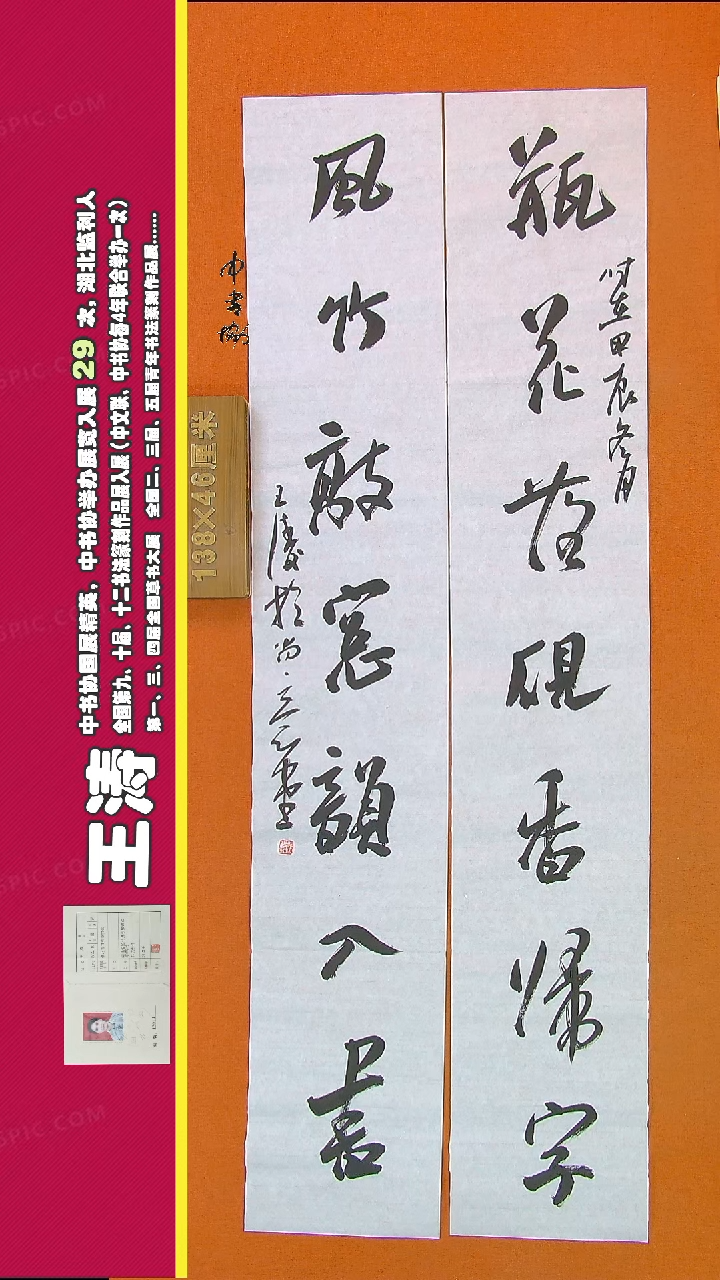 瓶花落硯香歸字
時在甲辰冬月
風竹敲窗韻入書
王濤於尚
中書協
138×46厘米
王涛
中书协国展精英，中书协举办展览入展29次，湖北监利人
全国第九、十届、十二书法篆刻作品展入展（中文联、中书协每4年联合举办一次）
第一、三、四届全国草书大展 全国二、三届、五届青年书法篆刻作品展……